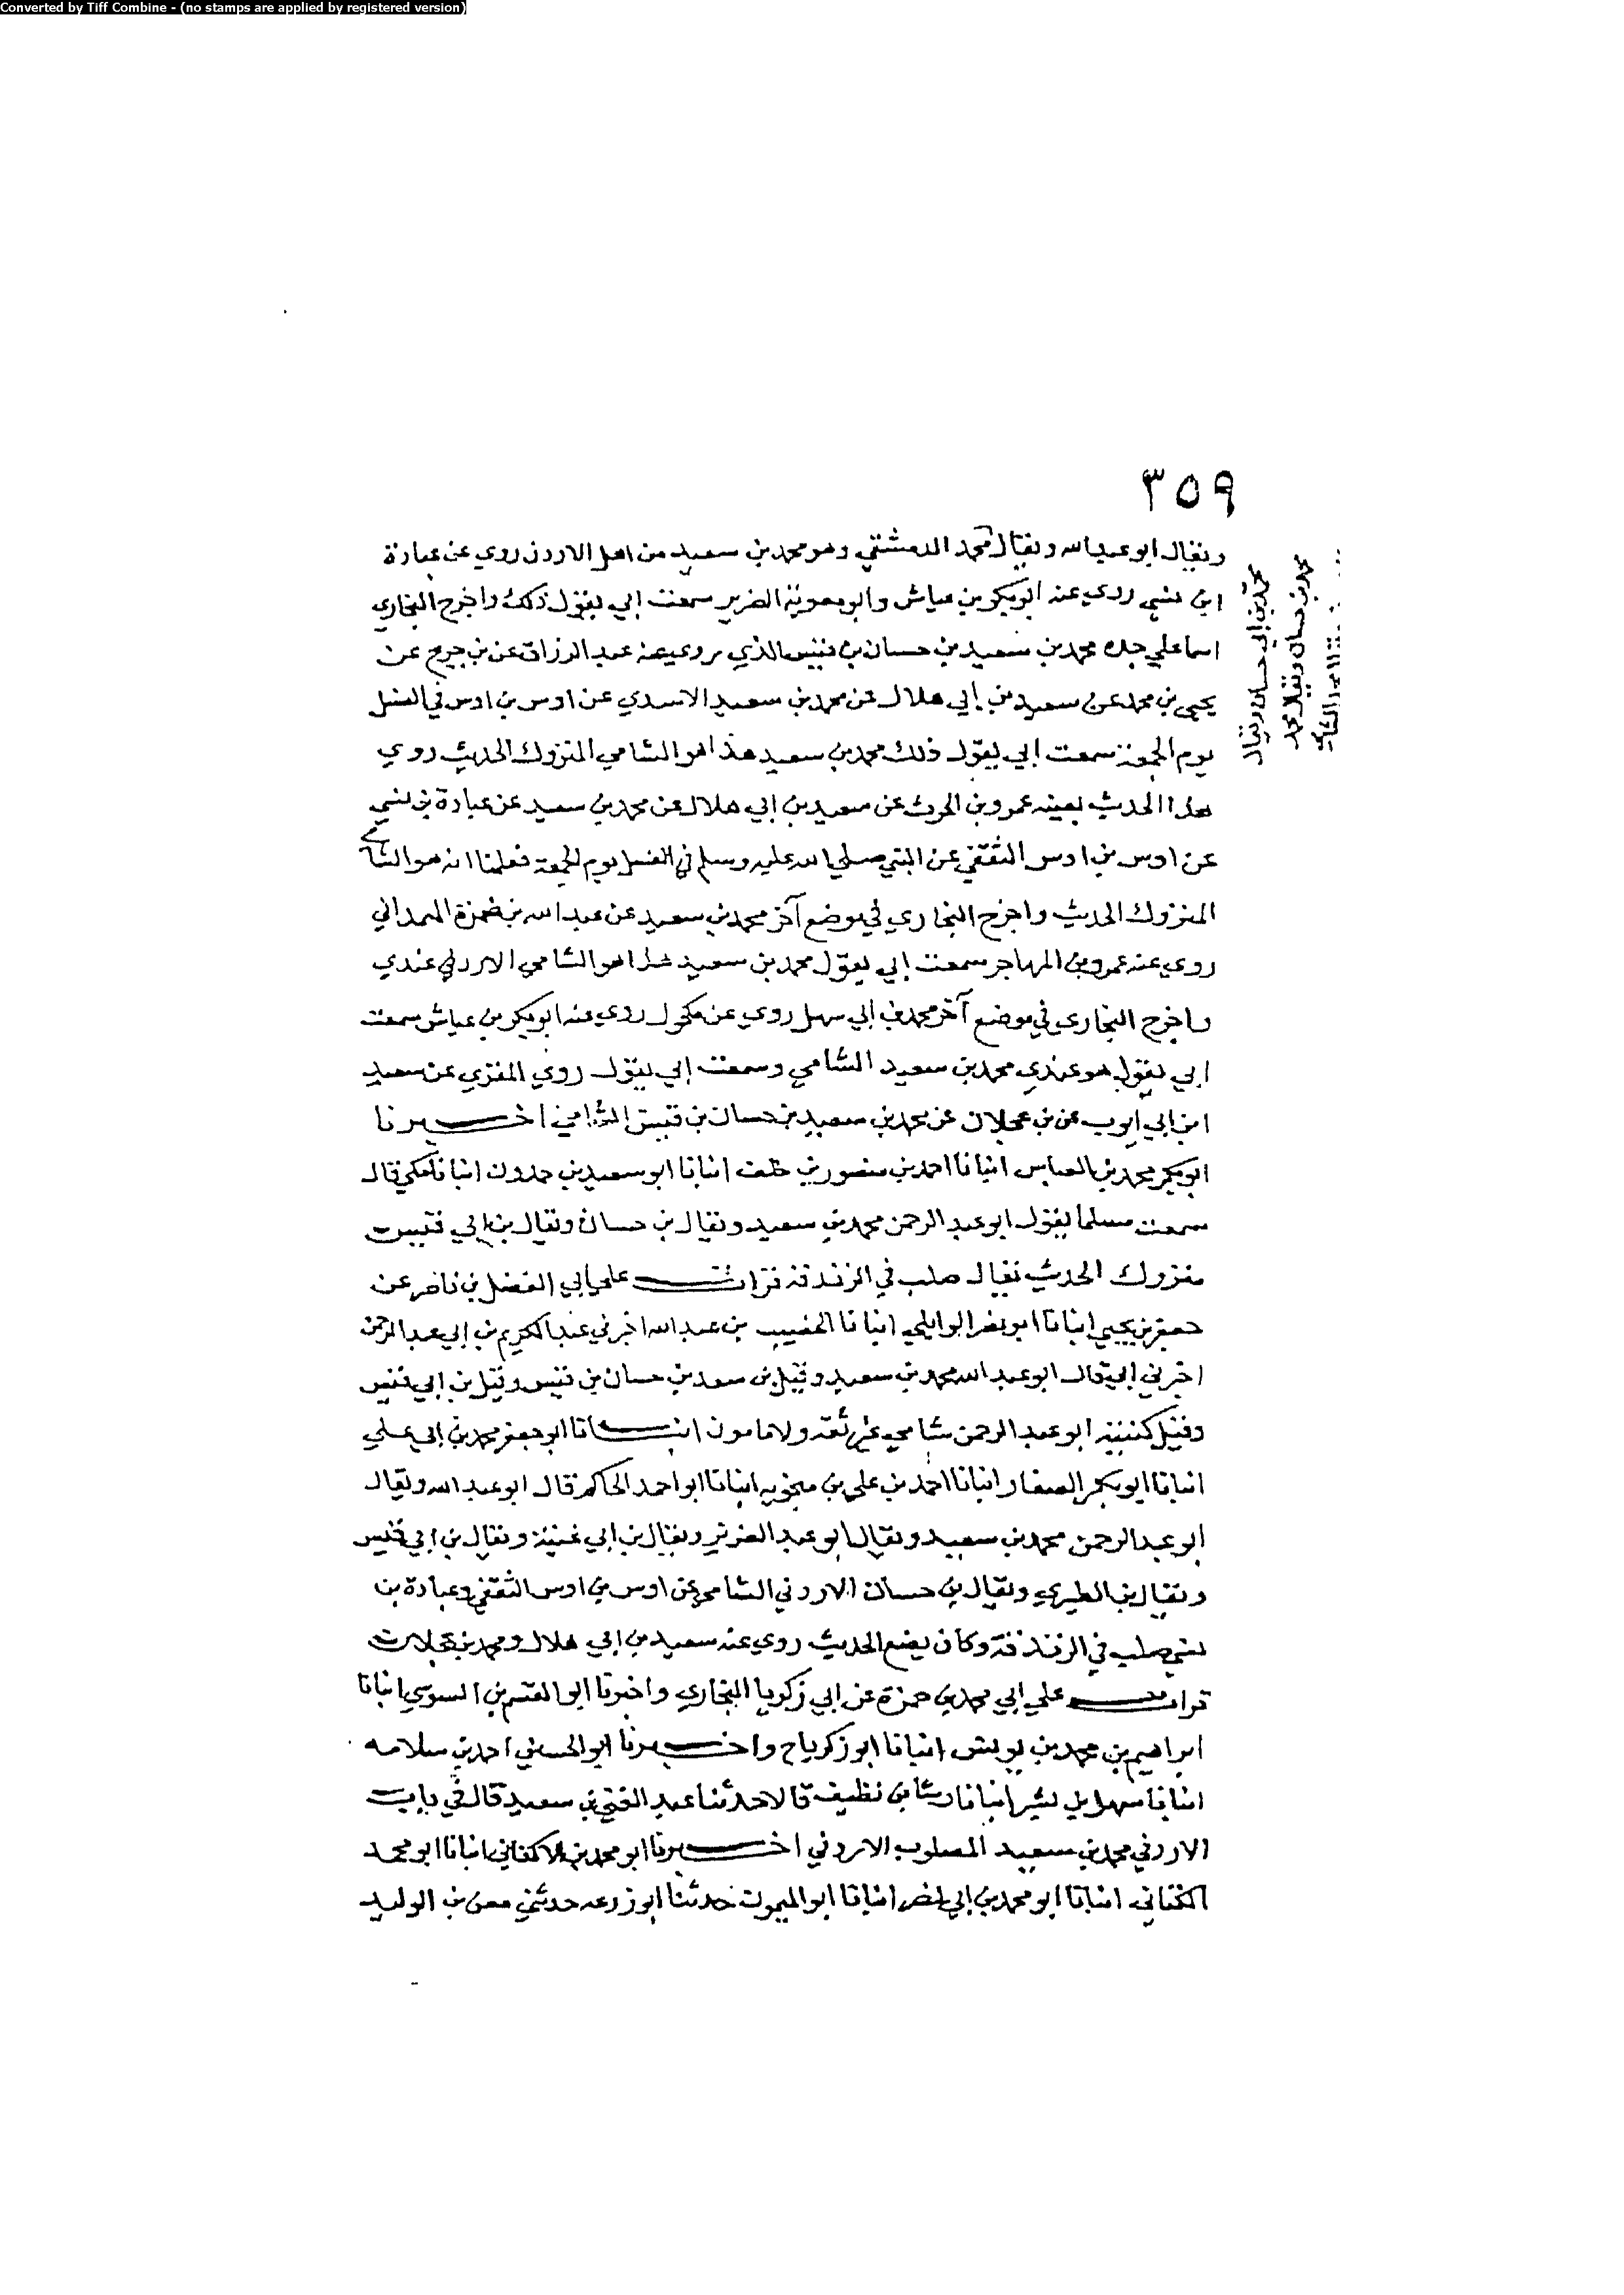 Converted by Tiff Combine - (no stamps are applied by registered version)
٣٥٩
ويقال ابو عبدالله ويقال محمد الدمشقي وهو محمد بن سعيد من اهل الاردن روي عن عبادة
ابن نسي روي عنه ابوبكر بن عياش وابو معوية الضرير سمعت ابي يقول ذلك واخرج البخاري
اسما علي حده محمد بن سعيد بن حسان بن قيس الذي روي عنه عبد الرزاق عن بن جريج عن
يحيي بن محمد عن سعيد بن ابي هلال عن محمد بن سعيد الاسدي عن اوس بن اوس في الغسل
يوم الجمعة سمعت ابي يقول ذلك محمد بن سعيد هذا هو الشامي المتروك الحديث روي
هذا الحديث بعينه عمرو بن الحرث عن سعيد بن ابي هلال عن محمد بن سعيد عن عبادة بن نسي
عن اوس بن اوس الثقفي عن النبي صلي الله عليه وسلم في الغسل يوم الجمعة فعلمنا انه هو الشامي
المتروك الحديث واخرج البخاري في موضع آخر محمد بن سعيد عن عبدالله بن ضمرة الهمداني
روي عنه عمرو بن المهاجر سمعت ابي يقول محمد بن سعيد هذا هو الشامي الاردني عندي
واخرج البخاري في موضع آخر محمد بن ابي سهل روي عن مكحول روي عنه ابوبكر بن عياش سمعت
ابي يقول هو عندي محمد بن سعيد الشامي وسمعت ابي يقول روي المقري عن سعيد
ابن ابي ايوب عن بن عجلان عن محمد بن سعيد بن حسان بن قيس الشامي اخبرنا
ابوبكر محمد بن العباس انبانا احمد بن منصور بن خلف انبانا ابو سعيد بن حمدون انبانا مكي قال
سمعت مسلما يقول ابو عبد الرحمن محمد بن سعيد ويقال بن حسان ويقال بن ابي قيس
متروك الحديث يقال صلب في الزندقة قرات علي ابي الفضل بن ناصر عن
جعفر بن يحيي انبانا ابو نصر الوايلي انبانا الخصيب بن عبدالله اخبرني عبد الكريم بن ابي عبد الرحمن
اخبرني ابي قال ابو عبد الله محمد بن سعيد وقيل بن سعد بن حسان بن قيس وقيل بن ابي قيس
وقيل كنيته ابو عبد الرحمن شامي غير ثقة ولا مامون انبانا ابو جعفر محمد بن ابي علي
انبانا ابو بكر الصفار انبانا احمد بن علي بن منجويه انبانا ابو احمد الحاكم قال ابو عبد الله ويقال
ابو عبد الرحمن محمد بن سعيد ويقال ابو عبد العزيز ويقال بن ابي عتبة ويقال بن ابي قيس
ويقال بن الطبري ويقال بن حسان الاردني الشامي عن اوس بن اوس الثقفي وعبادة بن
نسي صلب في الزندقة وكان يضع الحديث روي عنه سعيد بن ابي هلال ومحمد بن عجلان
قرات علي ابي محمد بن حمزة عن ابي زكريا البخاري واخبرنا ابو القسم بن السوسي انبانا
ابراهيم بن محمد بن يونس انبانا ابو زكريا ح واخبرنا ابو الحسين احمد بن سلامه
انبانا سهل بن بشر انبانا رشا بن نظيف قالا حدثنا عبد الغني بن سعيد قال في باب
الاردني محمد بن سعيد المصلوب الاردني اخبرنا ابو محمد بن الاكفاني انبانا ابو محمد
الكتاني انبانا ابو محمد بن ابي نصر انبانا ابو الميمون حدثنا ابو زرعه حدثني معن بن الوليد
محمد بن ابي حسان ويقال
محمد بن حسان ويقال محمد